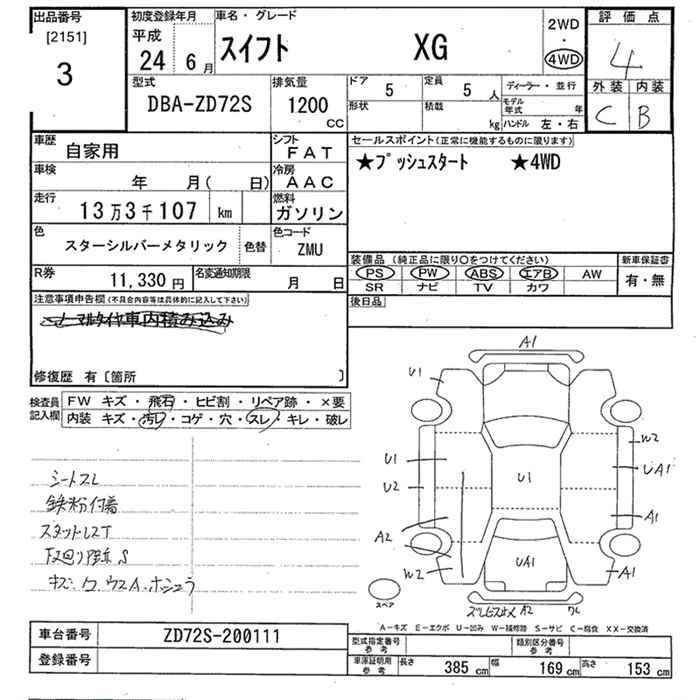 出品番号
[2151]
3
初度登録年月
平成
24 6月
車名・グレード
スイフト XG
2WD
・
4WD
評価点
4
外装 内装
C B
型式
DBA-ZD72S
排気量
1200
CC
ドア 5
定員 5 人
形状
積載 kg
ディーラー・並行
モデル年式 年
ハンドル 左・右
車歴
自家用
シフト
FAT
車検
年 月( 日)
冷房
AAC
走行
13万3千107 km
燃料
ガソリン
色
スターシルバーメタリック
色替
色コード
ZMU
R券
11,330円
名変通知期限
月 日
セールスポイント(正常に機能するものに限ります)
★プッシュスタート ★4WD
装備品(純正品に限り〇をつけてください)
新車保証書
PS PW ABS エアB AW
SR ナビ TV カワ
有・無
後日品
注意事項申告欄(不具合内容等は具体的に記入して下さい)
ノーマルタイヤ車内積み込み
修復歴 有〔箇所 〕
検査員記入欄
FW キズ・飛石・ヒビ割・リペア跡・×要
内装 キズ・汚レ・コゲ・穴・スレ・キレ・破レ
シートスレ
鉄粉付着
スタットレスT
下回り
S
キズ
A1
U1
W2
U1
U1
UA1
U2
A1
A2
UA1
W2
A1
スペア
A2
A-キズ E-エクボ U-凹み W-補修跡 S-サビ C-腐食 XX-交換済
車台番号
ZD72S-200111
登録番号
型式指定番号
参考
類別区分番号
参考
車庫証明用
参考
長さ 385 cm
幅 169 cm
高さ 153 cm